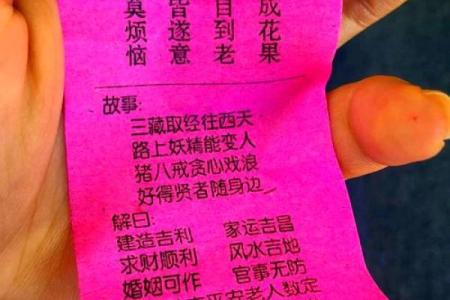 莫 皆 自 成
烦 遂 到 花
恼 意 老 果
故事:
三藏取经往西天
路上妖精能变人
猪八戒贪心戏浪
好得贤者随身边
解曰:
建造吉利 家运吉昌
求财顺利 风水吉地
婚姻可作 官事无防
平安老人数定